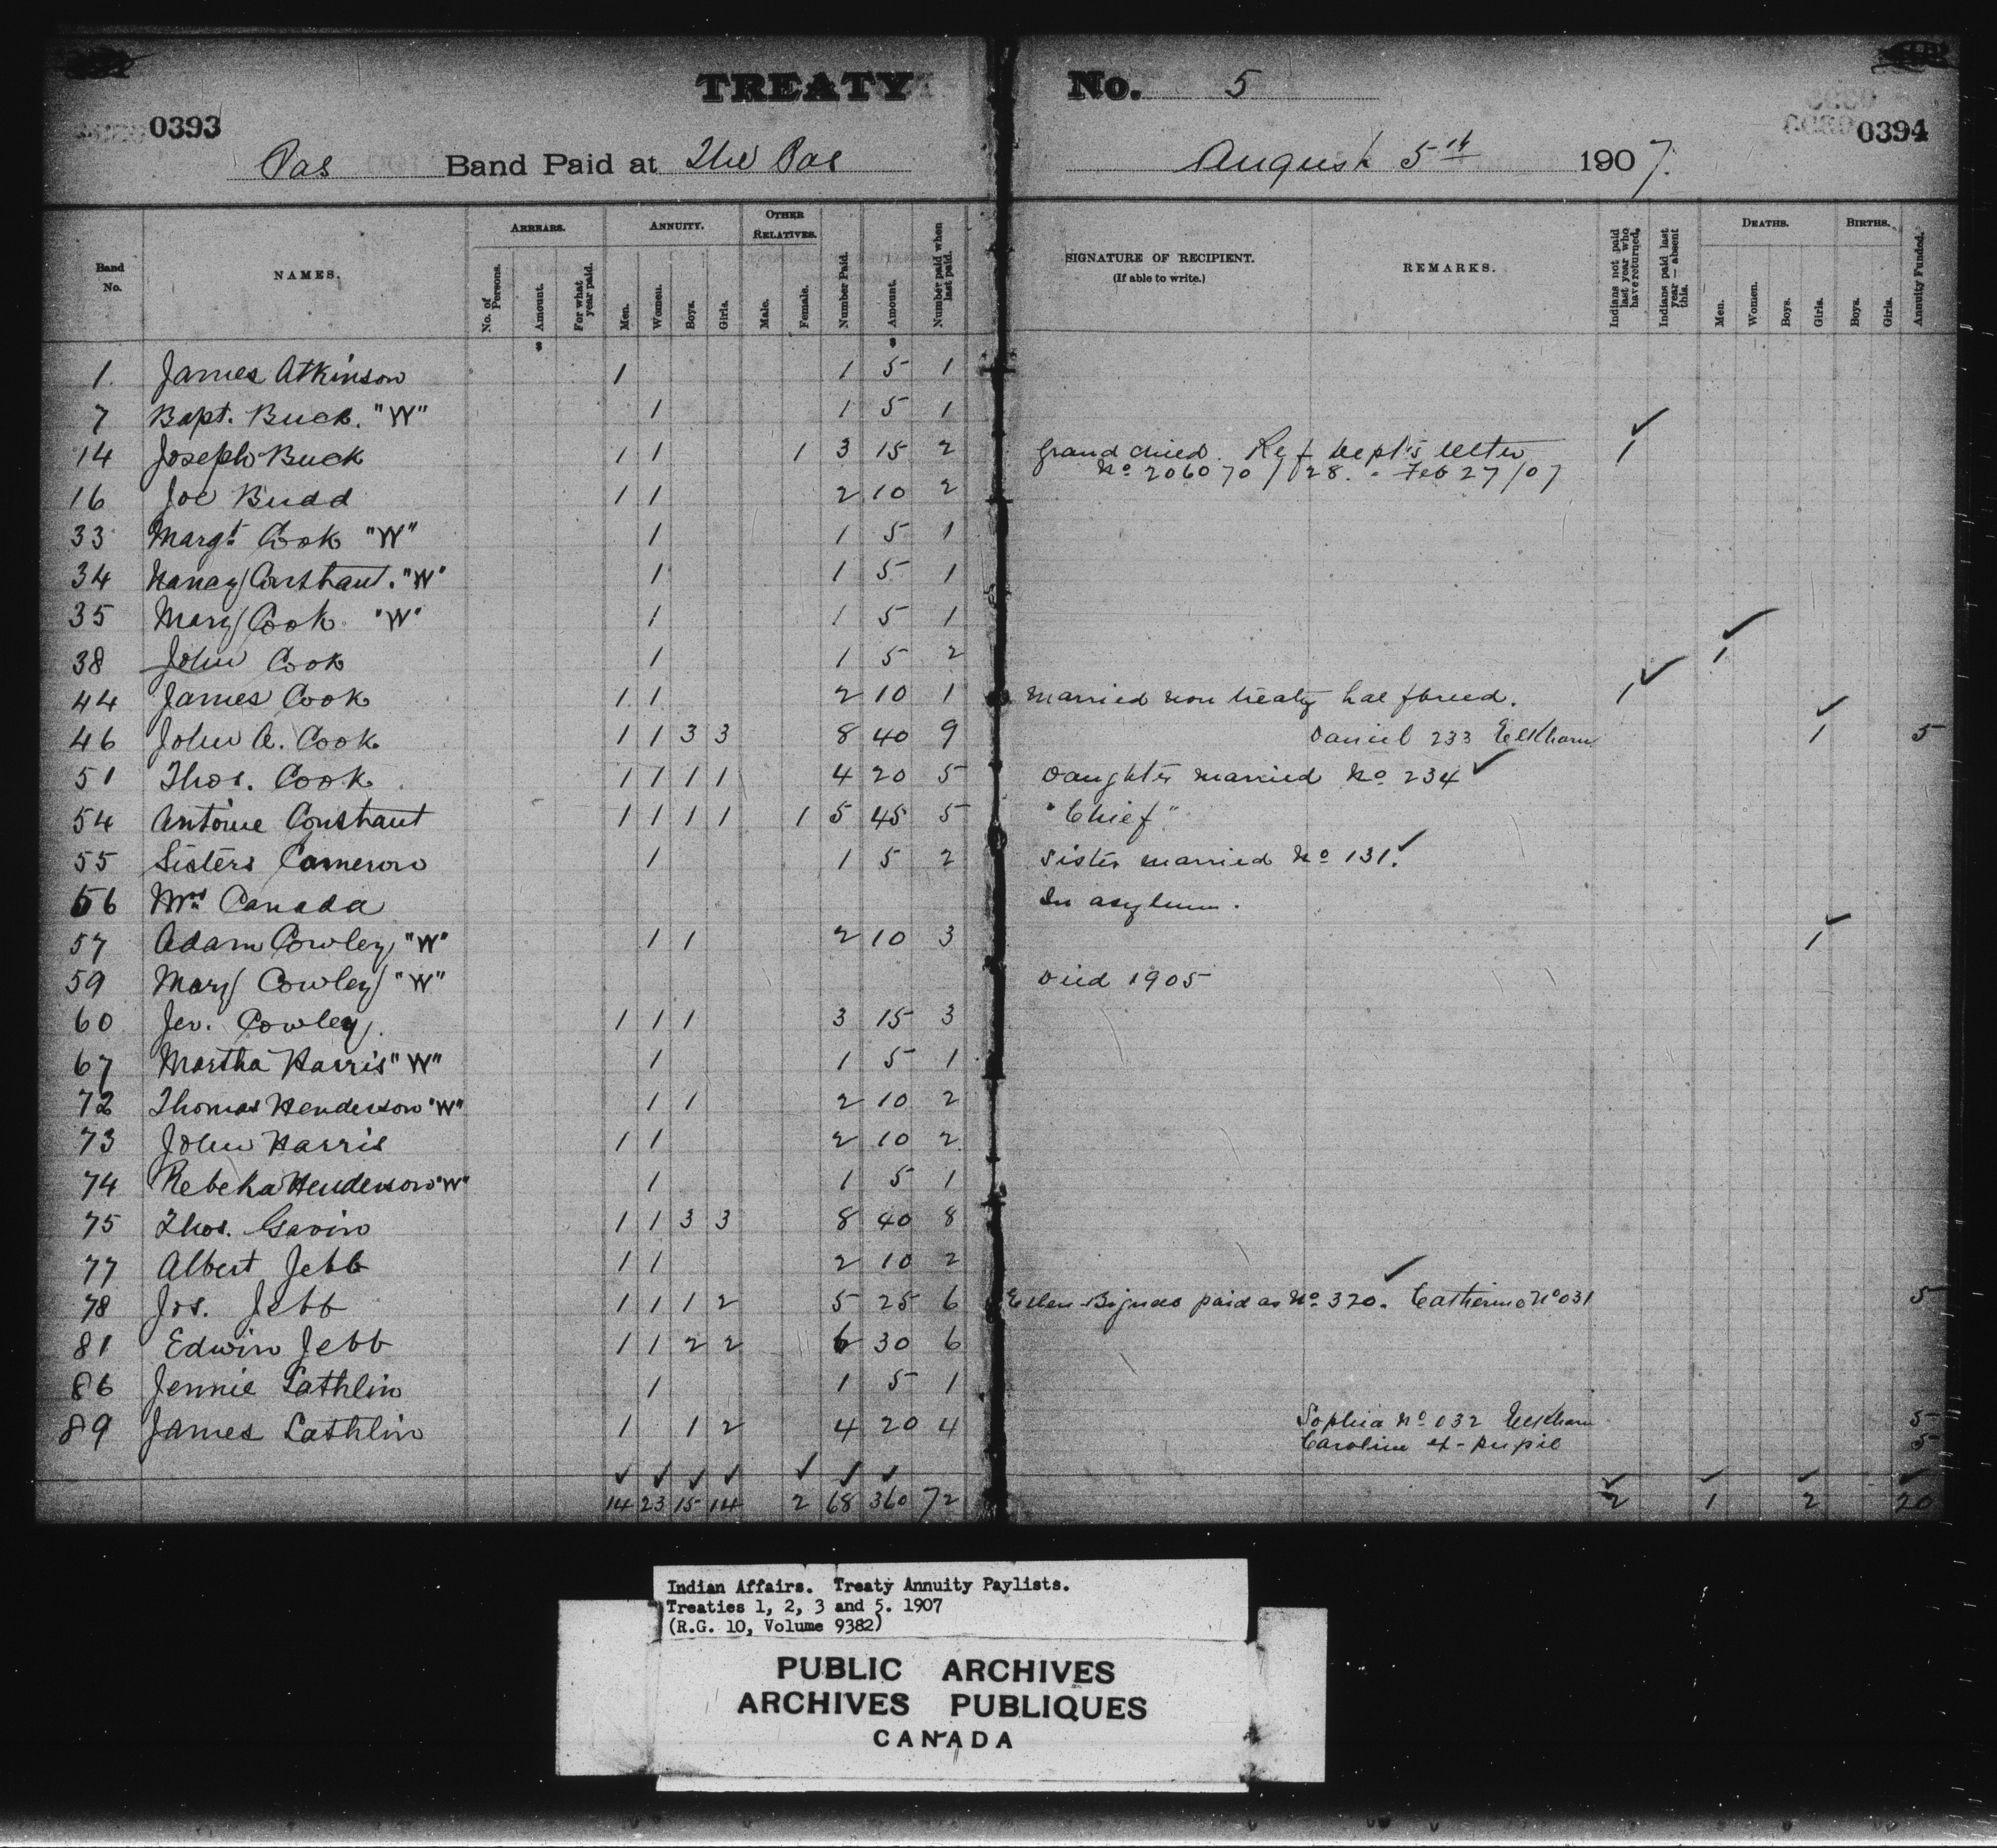 TREATY No. 5
0393
0394
Pas Band Paid at The Pas August 5th 1907.
Band No.
NAMES.
ARREARS.
No. of Persons.
Amount.
For what year paid.
ANNUITY.
Men.
Women.
Boys.
Girls.
OTHER RELATIVES.
Male.
Female.
Number Paid.
Amount.
Number paid when last paid.
SIGNATURE OF RECIPIENT.
(If able to write.)
REMARKS.
Indians not paid last year who have returned.
Indians paid last year — absent this.
DEATHS.
Men.
Women.
Boys.
Girls.
BIRTHS.
Boys.
Girls.
Annuity Funded.
$ $
1. James Atkinson 1 1 5 1
7 Bapt. Buck. "W" 1 1 5 1
14 Joseph Buck 1 1 1 3 15 2 Grand child. Ref Dept's letter 1
No 206070/28. - Feb 27/07
16 Joe Budd 1 1 2 10 2
33 Margt. Cook "W" 1 1 5 1
34 Nancy Constant. "W" 1 1 5 1
35 Mary Cook "W" 1 1 5 1
38 John Cook 1 1 5 2 1
44 James Cook 1 1 2 10 1 Married non treaty half breed. 1
46 John A. Cook 1 1 3 3 8 40 9 Daniel 233 Elkhorn 1 5
51 Thos. Cook 1 1 1 1 4 20 5 Daughter married No 234
54 Antoine Constant 1 1 1 1 1 5 45 5 "Chief"
55 Sisters Cameron 1 1 5 2 Sister married No 131.
56 Mrs Canada In asylum.
57 Adam Cowley "W" 1 1 2 10 3 1
59 Mary Cowley "W" Died 1905
60 Jer. Cowley. 1 1 1 3 15 3
67 Martha Harris "W" 1 1 5 1
72 Thomas Henderson "W" 1 1 2 10 2
73 John Harris 1 1 2 10 2
74 Rebeka Henderson "W" 1 1 5 1
75 Thos. Gavin 1 1 3 3 8 40 8
77 Albert Jebb 1 1 2 10 2
78 Jos. Jebb 1 1 1 2 5 25 6 Ellen Bignell paid as No 320. Catherine No 031 5
81 Edwin Jebb 1 1 2 2 6 30 6
86 Jennie Lathlin 1 1 5 1
89 James Lathlin 1 1 2 4 20 4 Sophia No 032 Elkhorn 5
Caroline ex-pupil 5
14 23 15 14 2 68 360 72 2 1 2 20
Indian Affairs. Treaty Annuity Paylists.
Treaties 1, 2, 3 and 5. 1907
(R.G. 10, Volume 9382)
PUBLIC ARCHIVES
ARCHIVES PUBLIQUES
CANADA